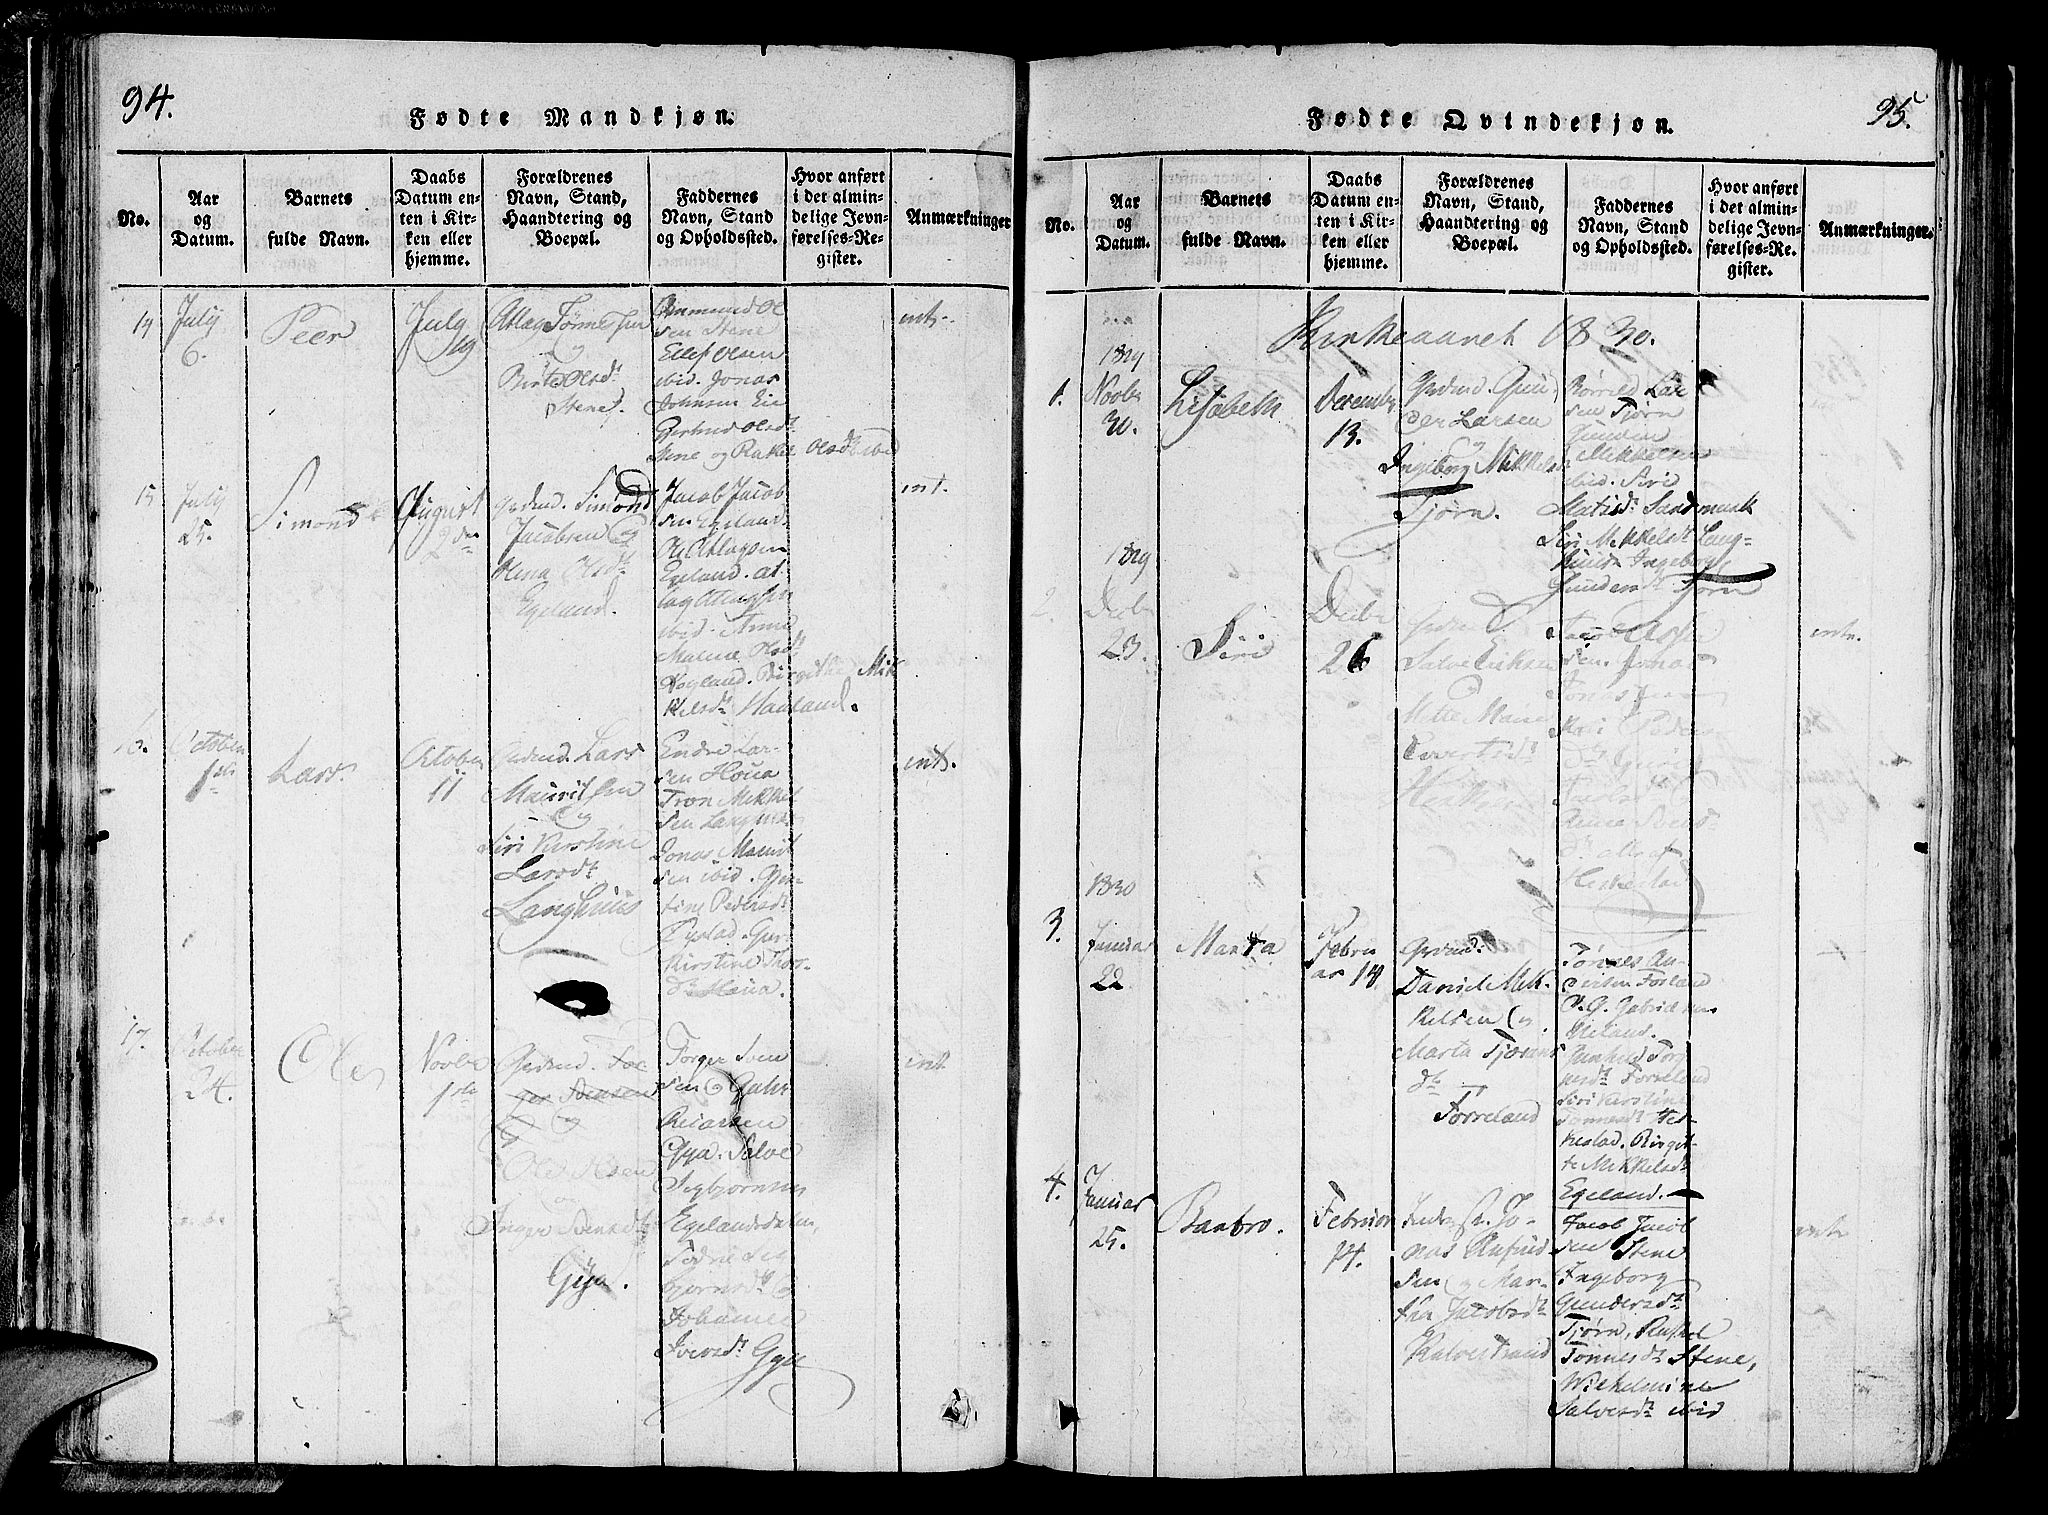 94.
Fødte Mandkjøn.
No.
Aar
og
Datum.
Barnets
fulde Navn.
Daabs
Datum en-
ten i Kir-
ken eller
hjemme.
Forældrenes
Navn, Stand,
Haandtering og
Boepæl.
Faddernes
Navn, Stand
og Opholdssted.
Hvor anført
i det almin-
delige Jevn-
førelses-Re-
gister.
Anmærkninger
14
July
6.
Peer
July
19
Atlag Tønnesen
og
Birte Olsdt
Stene.
Ommund Ol
sen Stene
Ellef Olsen
ibid. Jonas
Johnsen Eie
Gjertrud Olsdt
Stene og Rakel Olsdt ibid
int.
15
July
25.
Simond
August
2den
Grdmd. Simond
Jacobsen og
Olena Olsdt
Egeland.
Jacob Jacob
sen Egeland.
Ole Atlagsen
Egeland. At
lag Atlagsen
ibid. Anne
Malene Olsdt
Hegland. Birgitte Mik
kelsdt Haaland.
int.
16.
October
1ste
Lars.
October
11
Grdmd. Lars
Mauritsen
og
Siri Kirstine
Larsdt
Langhuus
Endre Lar-
sen Houa
Tron Mikkel
sen Langhuus
Jonas Maurit
sen ibid. Gju-
rine Pedersdt
Rystad. Gur
Kirstine Thor-
dt Houa.
int.
17.
October
24.
Ole
Novbr
1ste
Grdmd. Tor-
ger Svensen
og
Ole Olsen
og
Inger Svensdt
Gya.
Torger Sven
sen og Gabr
Reiarsen
Gya. Salve
Sigbjørnsen
Egelandsdalen,
Todne Sig
bjørnsdt og
Johanne
Iversdt Gya
int
95.
Fødte Qvindekjøn.
No.
Aar
og
Datum.
Barnets
fulde Navn.
Daabs
Datum en-
ten i Kir-
ken eller
hjemme.
Forældrenes
Navn, Stand,
Haandtering og
Boepæl.
Faddernes
Navn, Stand
og Opholdssted.
Hvor anført
i det almin-
delige Jevn-
førelses-Re-
gister.
Anmærkninger.
Kirkeaaret 1830.
1829
1.
Novbr
30.
Lisabeth
December
13.
Grdmd. Gun
der Larsen
og
Ingeborg Mikkelsdt
Tjørn.
Børild Lar
sen Tjørn
Gunder
Mikkelsen
ibid. Siri
Matisdt Sandsmark
Siri Mikkelsdt Lang-
huus Ingeborg
Gundersdt Tjørn
1829
2.
Decbr
23.
Siri
Decbr
26
Grdmd.
Salve Eriksen
og
Mette Marie
Evertsdt
Heskestad
Anne Svends-
dt
Heskestad
int.
1830
3.
Januar
22
Marta
Febru
ar 14
Grdmd.
Daniel Mik-
kelsen og
Marta Tjørans
dt
Tørreland
Tønnes An-
dersen Fosland
P. G. Gabrielsen
Gunhild Torg
ersdt Tørreland
Siri Kirstine
Tønnesdt Hes-
kestad. Birgit-
te Mikkelsdt
Egeland.
4.
Januar
25.
Baabro.
Februar
14.
Inderst. Jo-
nas Aufind
sen og Mar-
tha Jacobsdt
Kalvestrand
Jacob Jacob
sen Stene
Ingeborg
Gundersdt
Tjørn, Rachel
Tønnesdt Stene,
Wilhelmine
Salvesdt ibid
int.